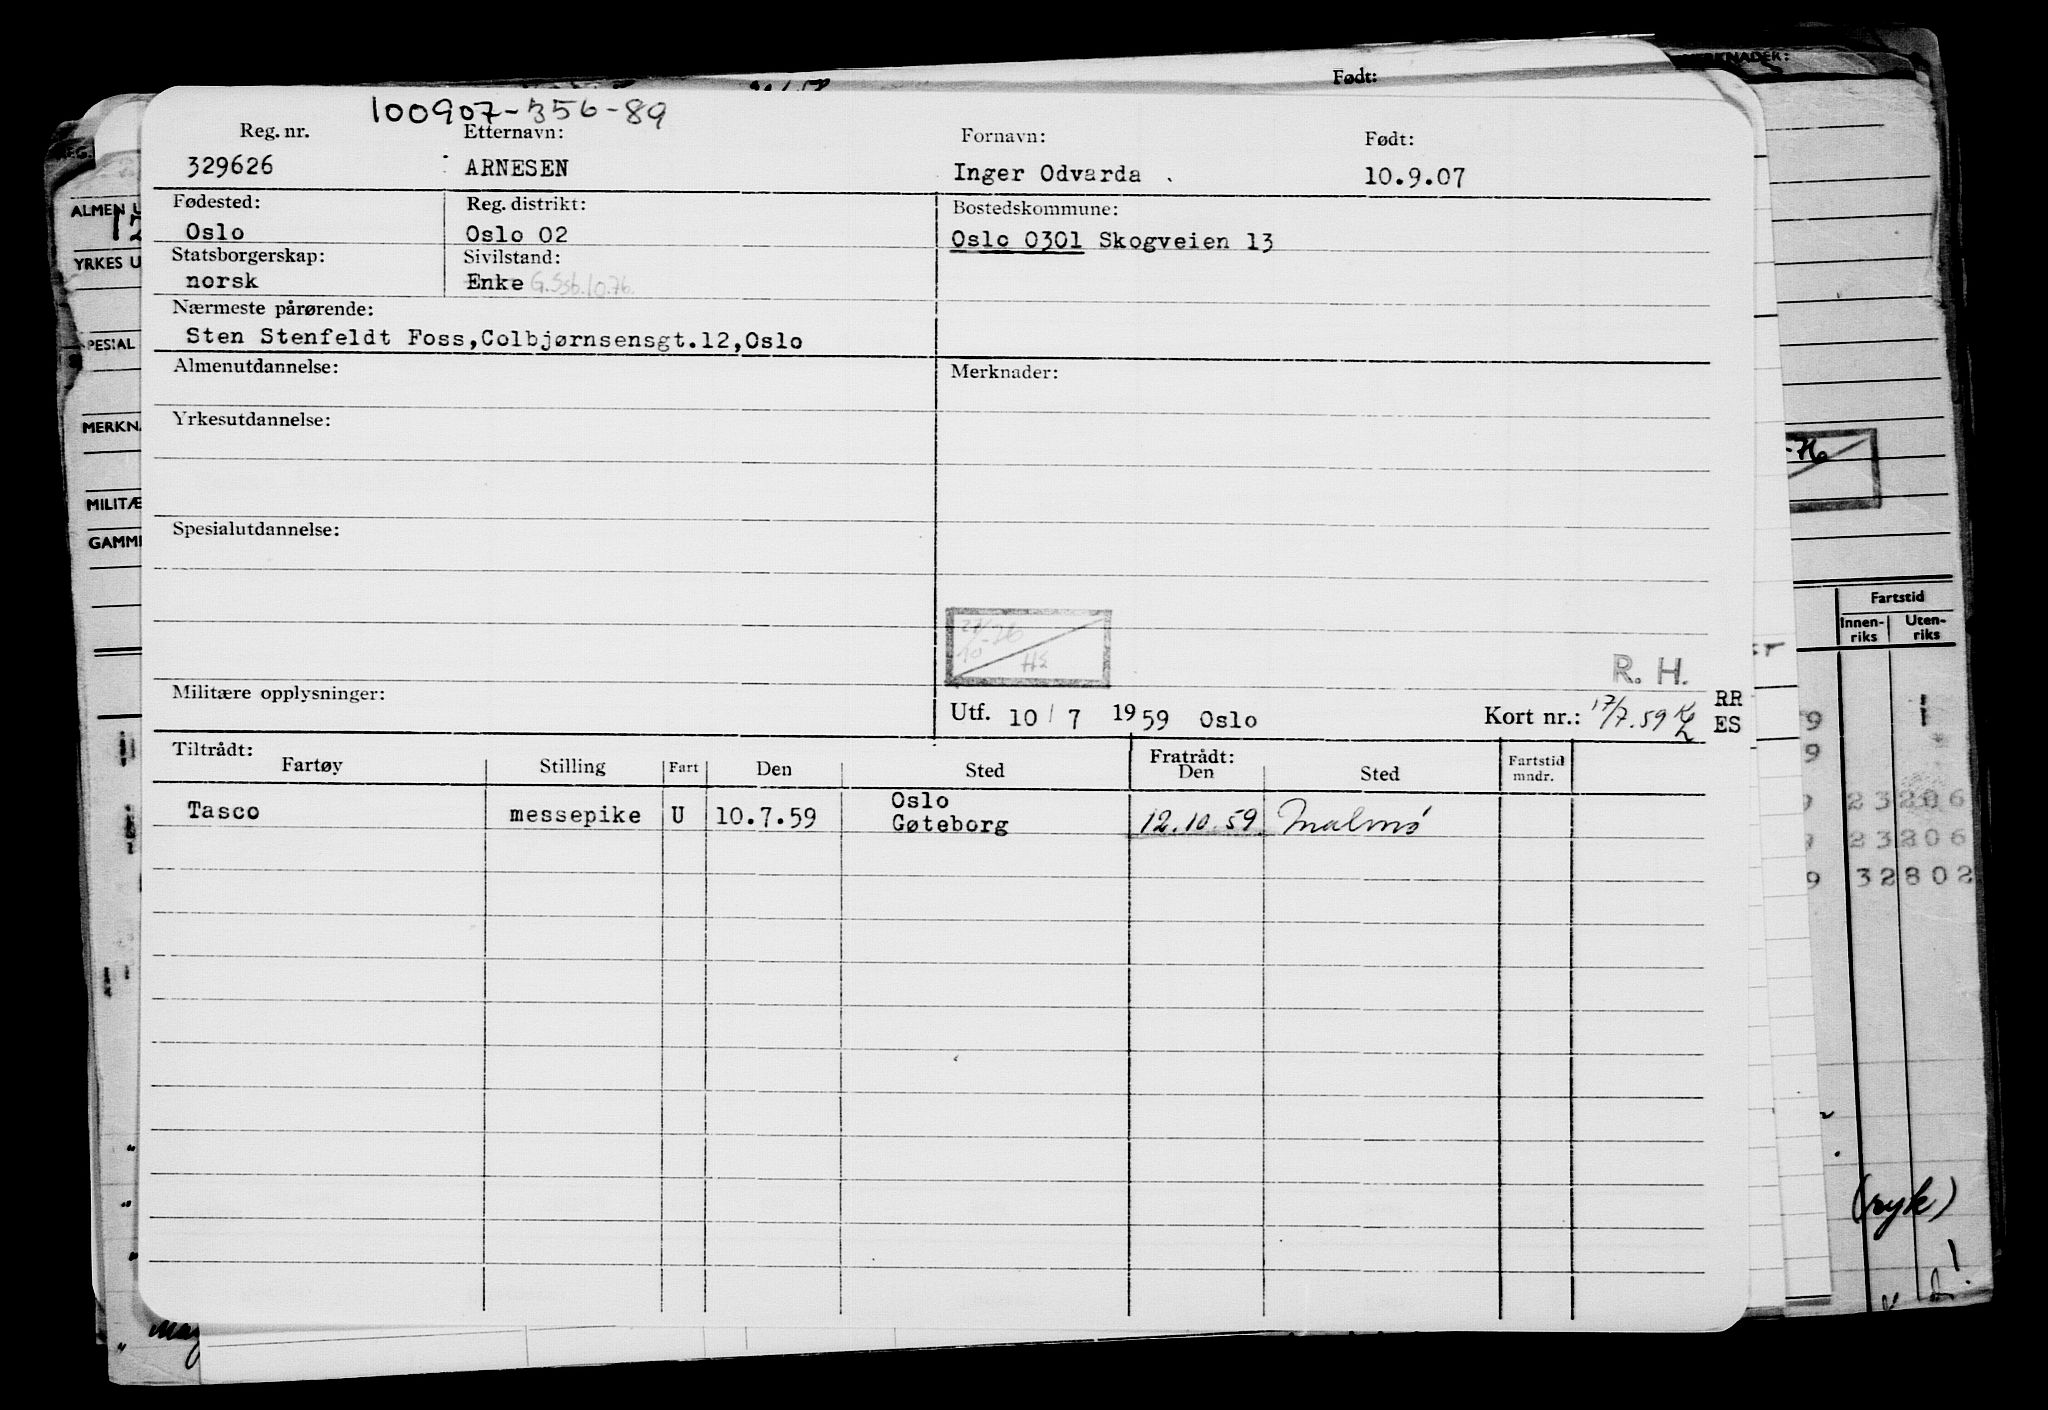 MERKNADER:
Født:
100907-356-89
Reg. nr. Etternavn: Fornavn: Født:
329626 ARNESEN Inger Odvarda 10.9.07
Fødested: Reg. distrikt: Bostedskommune:
Oslo Oslo 02 Oslo 0301 Skogveien 13
Statsborgerskap: Sivilstand:
norsk Enke G.Ssb.10.76.
Nærmeste pårørende:
Sten Stenfeldt Foss,Colbjørnsensgt.12,Oslo
Almenutdannelse: Merknader:
Yrkesutdannelse:
Spesialutdannelse:
27/10-76
HS
R. H.
Militære opplysninger:
Utf. 10/7 1959 Oslo Kort nr.: 17/7.59 RR
ES
Tiltrådt: Fratrådt:
Fartøy Stilling Fart Den Sted Den Sted Fartstid mndr.
Tasco messepike U 10.7.59 Oslo Gøteborg 12.10.59 Malmø
ALMEN U
12
YRKES U
PESIAL
MERKNA
MILITÆ
GAMME
-76
Fartstid
Innen-riks Uten-riks
9
9
9 23206
9 23206
9 32802
(ryk)